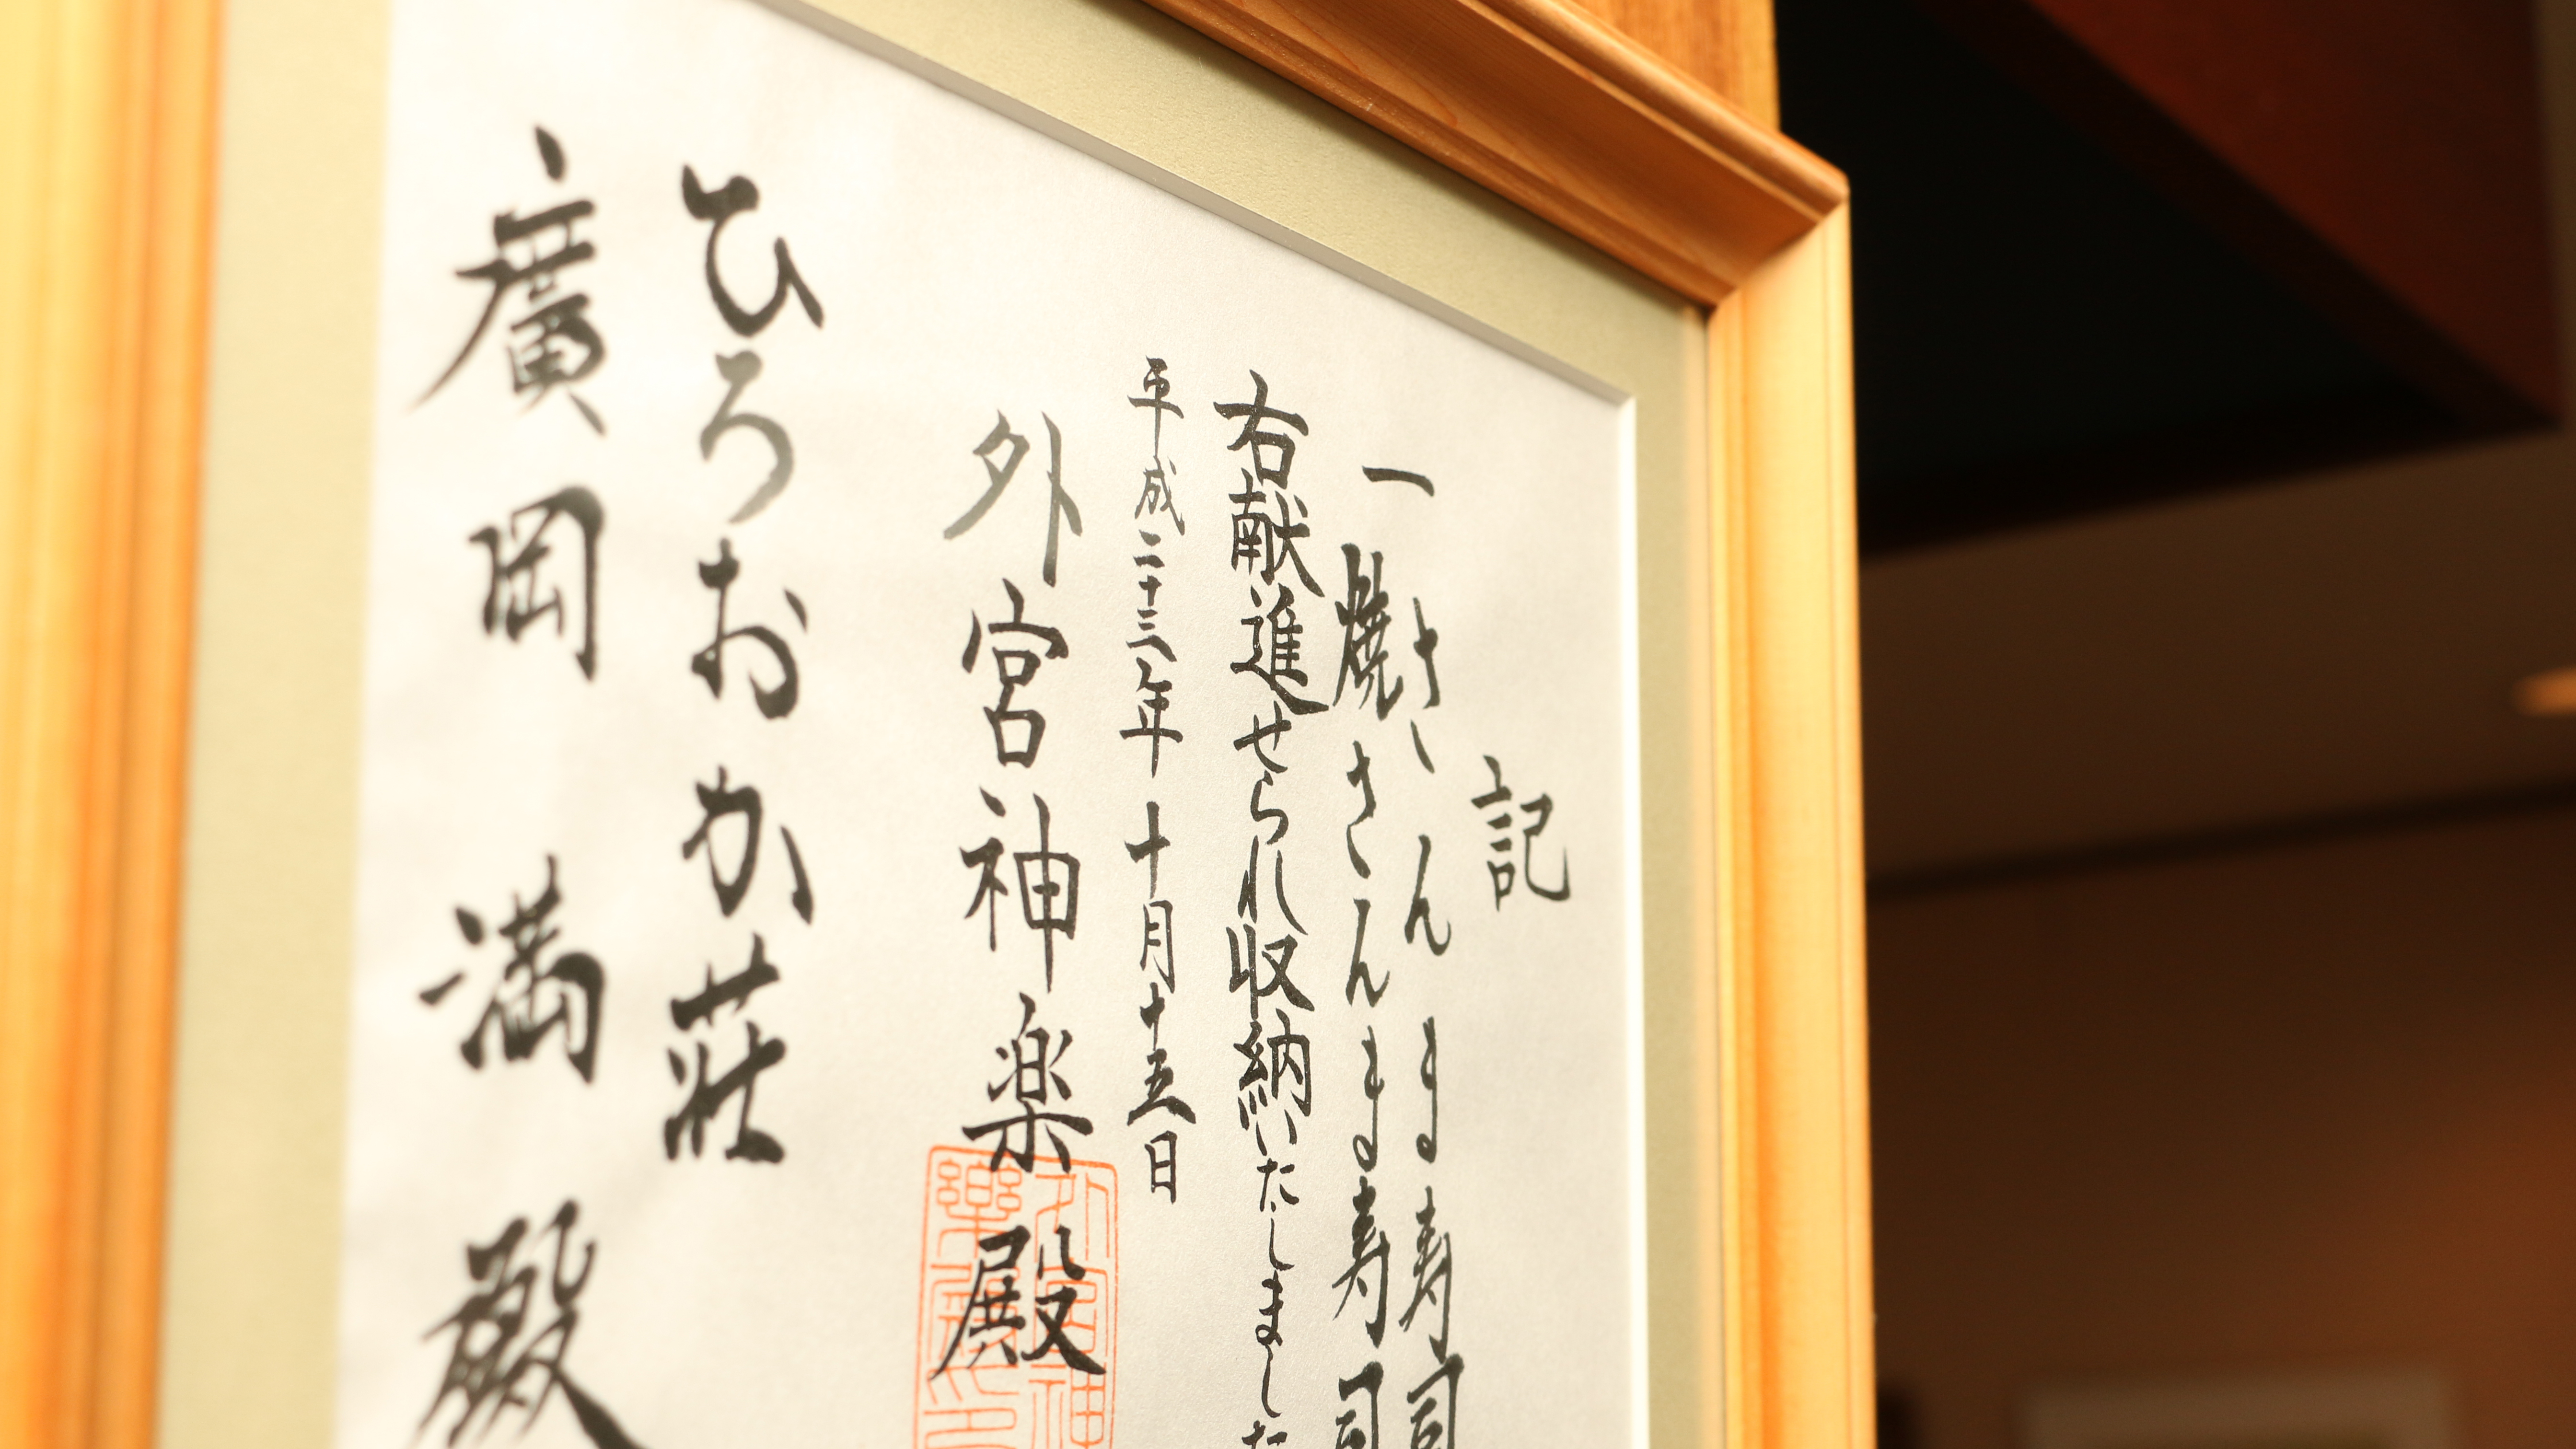 記
一
さんま寿司
焼さんま寿司
右献進せられ収納いたしました
平成二十三年十月十五日
外宮神楽殿
ひろおか荘
廣岡満殿